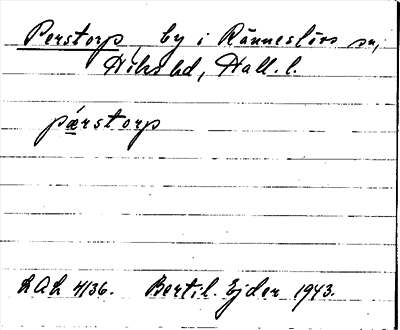 Perstorp, by i Ränneslövs sn,
Höks hd, Hall. l.
pærstorp
LAL 4136. Bertil Ejder 1943.